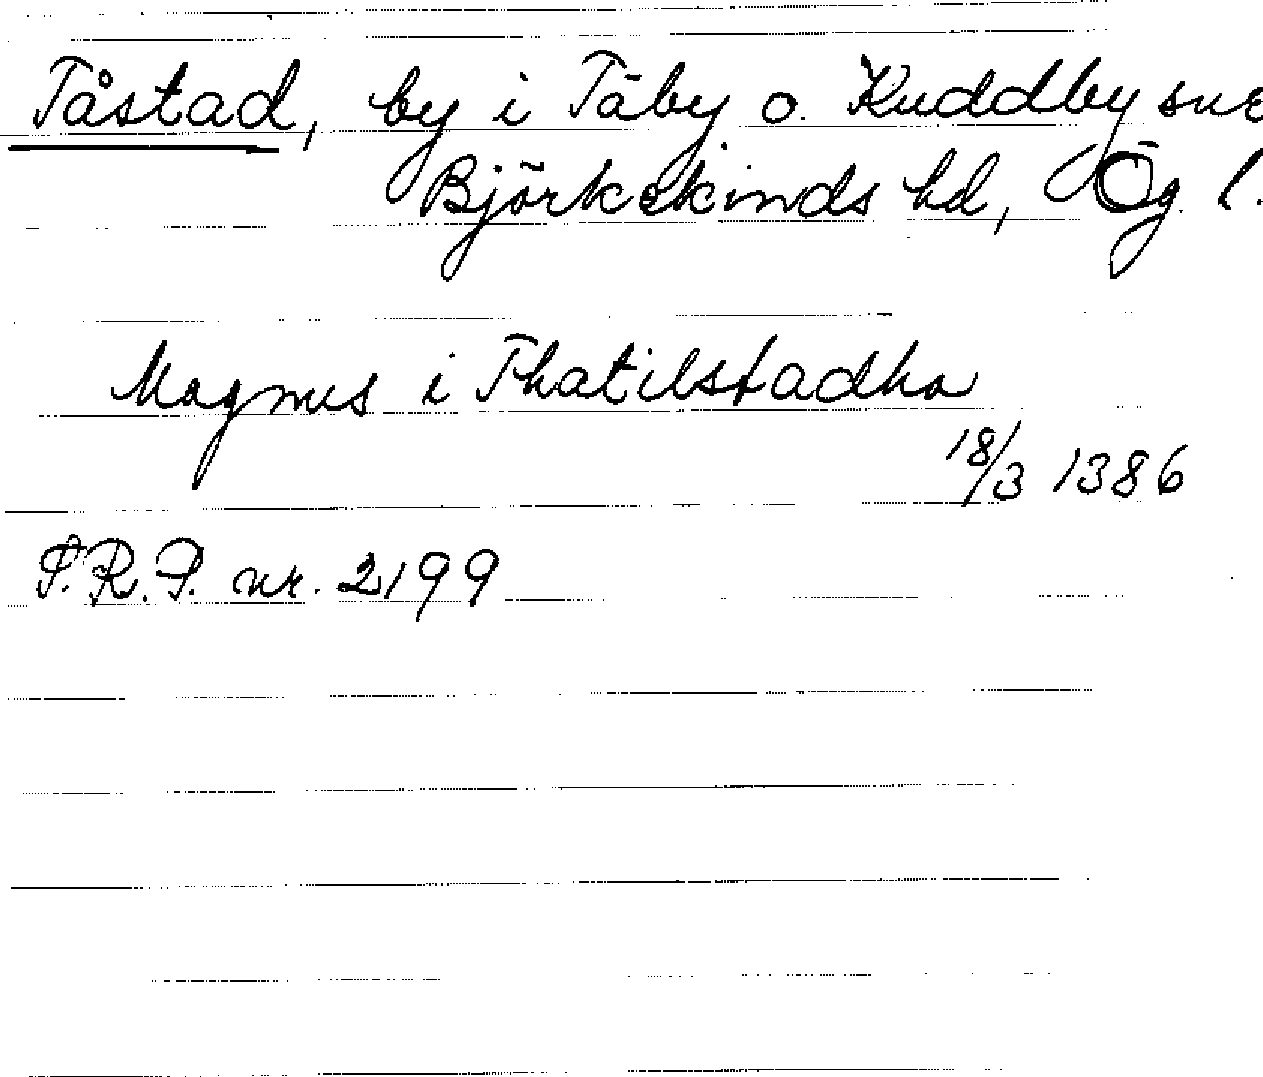 Tåstad, by i Täby o. Kuddby snr
Björkekinds hd, Ög. l.
Magnus i Thatilstadha
18/3 1386
S.R.P. nr. 2199